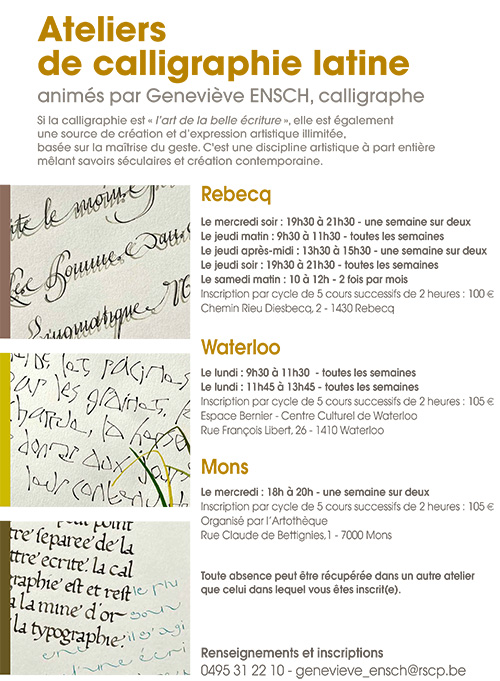 Ateliers
de calligraphie latine
animés par Geneviève ENSCH, calligraphe
Si la calligraphie est « l'art de la belle écriture », elle est également
une source de création et d'expression artistique illimitée,
basée sur la maîtrise du geste. C'est une discipline artistique à part entière
mêlant savoirs séculaires et création contemporaine.
Rebecq
Le mercredi soir : 19h30 à 21h30 - une semaine sur deux
Le jeudi matin : 9h30 à 11h30 - toutes les semaines
Le jeudi après-midi : 13h30 à 15h30 - une semaine sur deux
Le jeudi soir : 19h30 à 21h30 - toutes les semaines
Le samedi matin : 10 à 12h - 2 fois par mois
Inscription par cycle de 5 cours successifs de 2 heures : 100 €
Chemin Rieu Diesbecq, 2 - 1430 Rebecq
Waterloo
Le lundi : 9h30 à 11h30 - toutes les semaines
Le lundi : 11h45 à 13h45 - toutes les semaines
Inscription par cycle de 5 cours successifs de 2 heures : 105 €
Espace Bernier - Centre Culturel de Waterloo
Rue François Libert, 26 - 1410 Waterloo
Mons
Le mercredi : 18h à 20h - une semaine sur deux
Inscription par cycle de 5 cours successifs de 2 heures : 105 €
Organisé par l'Artothèque
Rue Claude de Bettignies,1 - 7000 Mons
Toute absence peut être récupérée dans un autre atelier
que celui dans lequel vous êtes inscrit(e).
Renseignements et inscriptions
0495 31 22 10 - genevieve_ensch@rscp.be
le moin
Homme Dans
les racines
par les graines, l
la herse
donner aux
leur contenu
peut point
tre separee de la
ttre ecrite. la cal
raphie est et rest
a la mine d'or
la typographie.